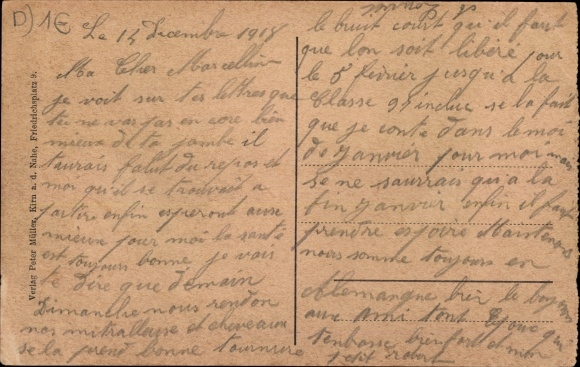 D) 1€
Le 14 Decembre 1918
Ma Cher Marcelline
je voit sur tes lettres que
tu ne vas pas encore bien
mieux de ta jambe il
taurais falut du repos et
moi qu'il se trouvait a
partire enfin esperont aure
mieux pour moi la santé
est toujours bonne je vais
te dire que demain
Dimanche nous rendon
nos mitralleuse et cheveaux
se la prend bonne tournure
le bruit court qu'il faut
que lon soit libéré pour
le 5 fevrier jusqu'a la
Classe 95 inclue se la fait
que je conte dans le moi
de janvier pour moi mais
se ne saurrais qu'a la
fin janvier enfin il faut
prendre espoire Maintenant
nous somme toujours en
Allemangne bien le bonjour
aux ami ton Epoux qui
t'enbrasse bien fort et mon
petit robert
Verlag Peter Müller, Kirn a. d. Nahe, Friedrichsplatz 9.